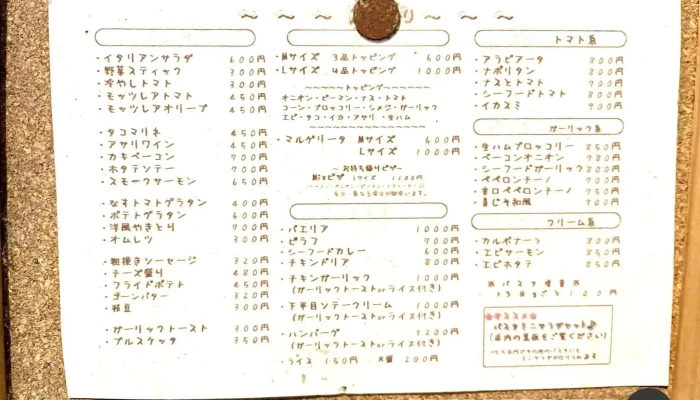 ・イタリアンサラダ 600円
・野菜スティック 300円
・冷やしトマト 300円
・モッツレアトマト 450円
・モッツレアオリーブ 450円
・タコマリネ 450円
・アサリワイン 450円
・カキベーコン 700円
・ホタテソテー 700円
・スモークサーモン 650円
・なすトマトグラタン 400円
・ポテトグラタン 600円
・洋風やきとり 700円
・オムレツ 300円
・粗挽きソーセージ 320円
・チーズ盛り 480円
・フライドポテト 450円
・コーンバター 320円
・枝豆 300円
・ガーリックトースト 300円
・ブルスケッタ 350円
・Mサイズ 3品トッピング 600円
・Lサイズ 4品トッピング 1000円
~~~~~トッピング~~~~~
オニオン・ピーマン・ナス・トマト
コーン・ブロッコリー・シメジ・ガーリック
エビ・タコ・イカ・アサリ・生ハム
・マルゲリータ Mサイズ 600円
Lサイズ 1000円
~ お持ち帰りピザ~
Mixピザ Lサイズ
・パエリア 1000円
・ピラフ 700円
・シーフードカレー 600円
・チキンドリア 800円
・チキンガーリック 1000円
(ガーリックトーストorライス付き)
・下平目ソテークリーム 1000円
(ガーリックトーストorライス付き)
・ハンバーグ 1200円
(ガーリックトーストorライス付き)
・ライス 150円 大盛 200円
トマト系
・アラビアータ 800円
・ナポリタン 800円
・ナスとトマト 700円
・シーフードトマト 800円
・イカスミ 900円
ガーリック系
・生ハムブロッコリー 850円
・ベーコンオニオン 780円
・シーフードガーリック 800円
・ペペロンチーノ 700円
・辛口ペペロンチーノ 750円
・青じそ和風 700円
クリーム系
・カルボナーラ 800円
・エビサーモン 850円
・エビホタテ 850円
※パスタ増量※
・・・50gごと100円
★オススメ★
パスタミニサラダセット♪
(店内の黒板をご覧ください)